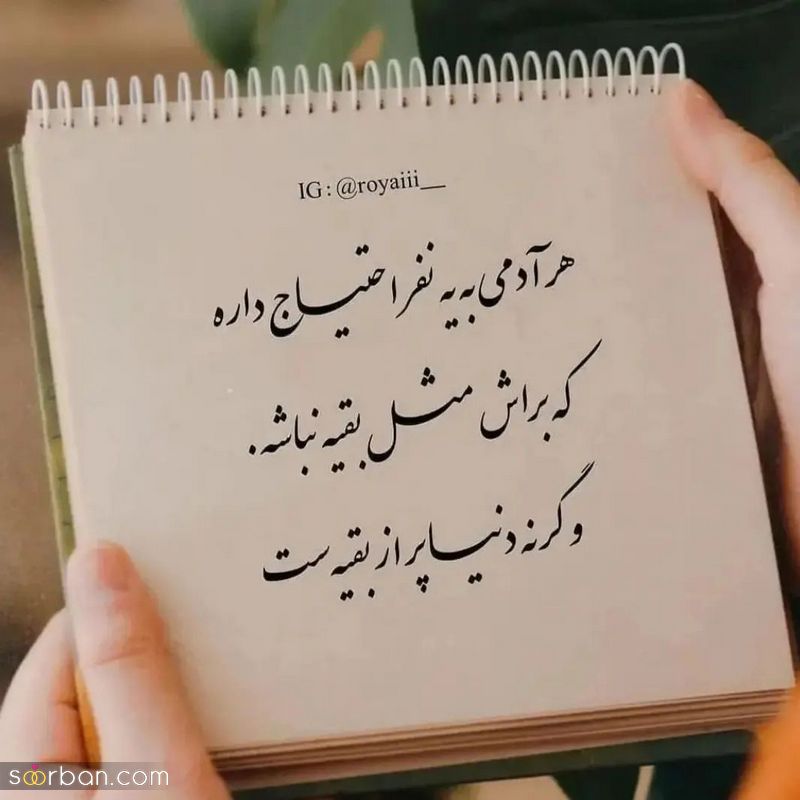 IG : @royaiii__
هر آدمی به یه نفر احتیاج داره
که براش مثل بقیه نباشه.
وگرنه دنیا پر از بقیه ست
soorban.com